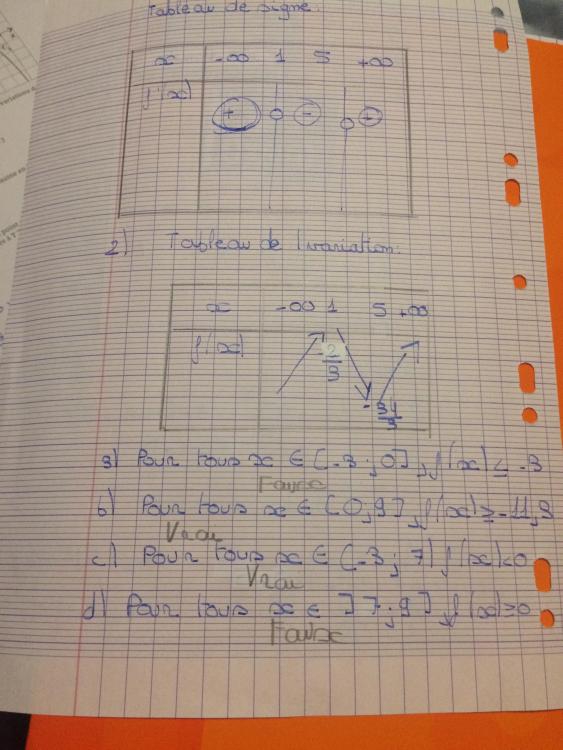 Tableau de signe.
x -∞ 1 5 +∞
f'(x) + 0 - 0 +
2) Tableau de variation.
x -∞ 1 5 +∞
f(x) -2/3 -34/3
3) Pour tous x ∈ [-3 ; 0], f(x) ≤ -3
Faux
b) Pour tous x ∈ [0 ; 9], f(x) ≥ -11,3
Vrai
c) Pour tous x ∈ [-3 ; 7] f(x) < 0
Vrai
d) Pour tous x ∈ ]7 ; 9], f(x) ≥ 0
Faux